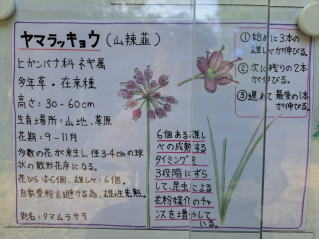 ヤマラッキョウ(山辣韮)
ヒガンバナ科 ネギ属
多年草・在来種
高さ:30-60cm
生育場所:山地、草原
花期:9-11月
多数の花が束生し、径3-4cmの球
状の散形花序になる。
花びらは6個、雄しべ:6個。
自家受粉を避ける為、雄性先熟。
別名:タマムラサキ
①始めに3本の
雄しべが伸びる。
②次に残りの2本
が伸びる。
③遅れて最後の1本
が伸びる。
6個ある雄し
べの成熟する
タイミングを
3段階にずら
して、昆虫による
花粉媒介のチャ
ンスを増やしてい
る。